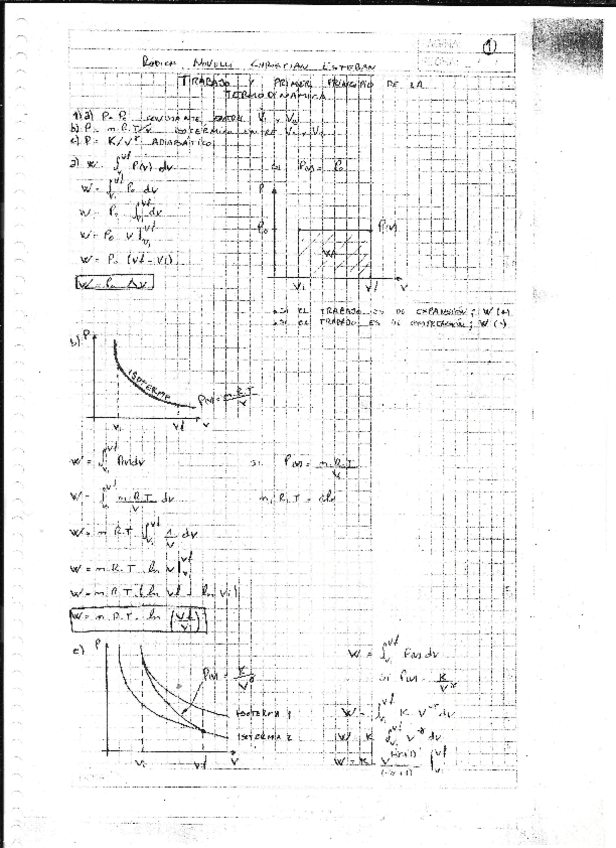 1
RODICH NOVELLI CHRISTIAN ESTEBAN
TRABAJO Y PRIMER PRINCIPIO DE LA
TERMODINAMICA
1) a) P = P₀ CONSTANTE ENTRE Vi y Vf
b) P = m.R.T/V ISOTERMICO ENTRE Vi y Vf
c) P = K/V^γ ADIABATICO
a) W = ∫Vi^Vf P(v) dv si P(v) = P₀
W = ∫Vi^Vf P₀ dv
W = P₀ ∫Vi^Vf dv
W = P₀ V |Vi^Vf
W = P₀ (Vf - Vi)
W = P₀ ΔV
P
P₀
P(v)
W
Vi Vf V
SI EL TRABAJO ES DE EXPANSION; W (+)
SI EL TRABAJO ES DE COMPRESION; W (-)
b) P
ISOTERMA
P(v) = m.R.T/V
Vi Vf V
W = ∫Vi^Vf P(v) dv si P(v) = m.R.T/V
W = ∫Vi^Vf m.R.T/V dv m.R.T = cte
W = m.R.T ∫Vi^Vf 1/V dv
W = m.R.T ln V |Vi^Vf
W = m.R.T. (ln Vf - ln Vi)
W = m.R.T. ln (Vf/Vi)
c) P
P(v) = K/V^γ
ISOTERMA 1
ISOTERMA 2
Vi Vf V
W = ∫Vi^Vf P(v) dv
si P(v) = K/V^γ
W = ∫Vi^Vf K V^-γ dv
W = K ∫Vi^Vf V^-γ dv
W = K V^(-γ+1)/(-γ+1) |Vi^Vf